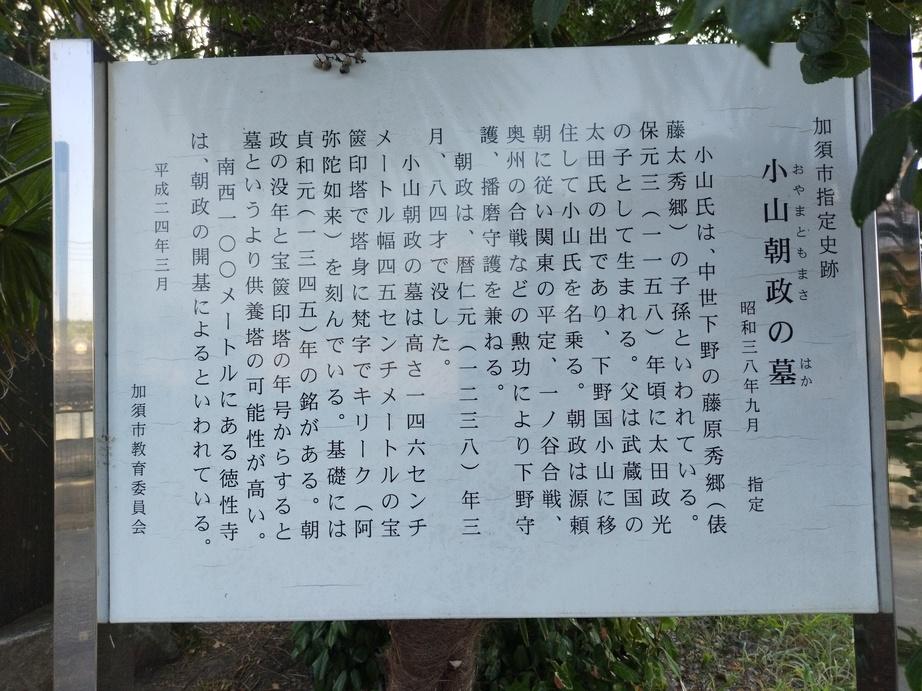 加須市指定史跡
おやまともまさ はか
小山朝政の墓
昭和三八年九月 指定
小山氏は、中世下野の藤原秀郷(俵
藤太秀郷)の子孫といわれている。
保元三(一一五八)年頃に太田政光
の子として生まれる。父は武蔵国の
太田氏の出であり、下野国小山に移
住して小山氏を名乗る。朝政は源頼
朝に従い関東の平定、一ノ谷合戦、
奥州の合戦などの勲功により下野守
護、播磨守護を兼ねる。
朝政は、暦仁元(一二三八)年三
月、八四才で没した。
小山朝政の墓は高さ一四六センチ
メートル幅四五センチメートルの宝
篋印塔で塔身に梵字でキリーク(阿
弥陀如来)を刻んでいる。基礎には
貞和元(一三四五)年の銘がある。朝
政の没年と宝篋印塔の年号からすると
墓というより供養塔の可能性が高い。
南西一〇〇メートルにある徳性寺
は、朝政の開基によるといわれている。
平成二四年三月
加須市教育委員会